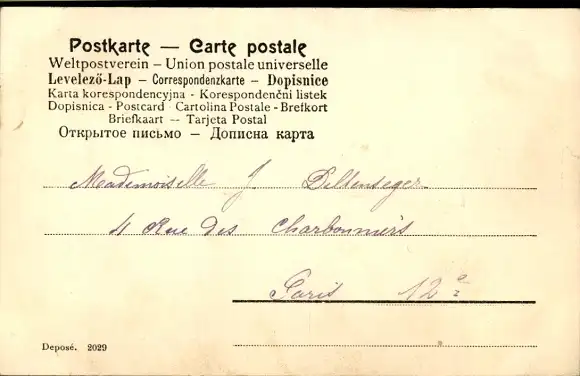 Postkarte — Carte postale
Weltpostverein – Union postale universelle
Levelező-Lap – Correspondenzkarte – Dopisnice
Karta korespondencyjna - Korespondenční listek
Dopisnica - Postcard - Cartolina Postale - Brefkort
Briefkaart — Tarjeta Postal
Открытое письмо – Дописна карта
Mademoiselle J
4 Rue des Charbonniers
Paris 12e
Deposé. 2029